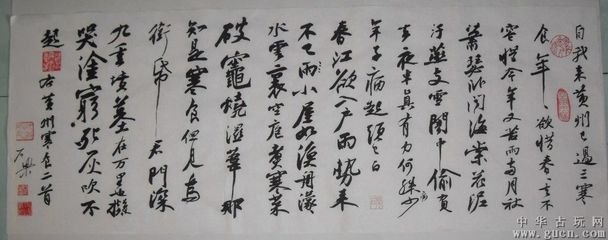 自我来黄州已过三寒
食年年欲惜春春去不
容惜今年又苦雨两月秋
萧瑟卧闻海棠花泥
污燕支雪闇中偷负
去夜半真有力何殊少
年子病起頭已白
春江欲入户雨势来
不已雨小屋如渔舟濛
水雲裏空庖煮寒菜
破竈燒湿葦那
知是寒食但見烏
銜帋君門深
九重墳墓在万里也擬
哭塗窮死灰吹不
起 右黄州寒食二首
中华古玩网
www.gucn.com